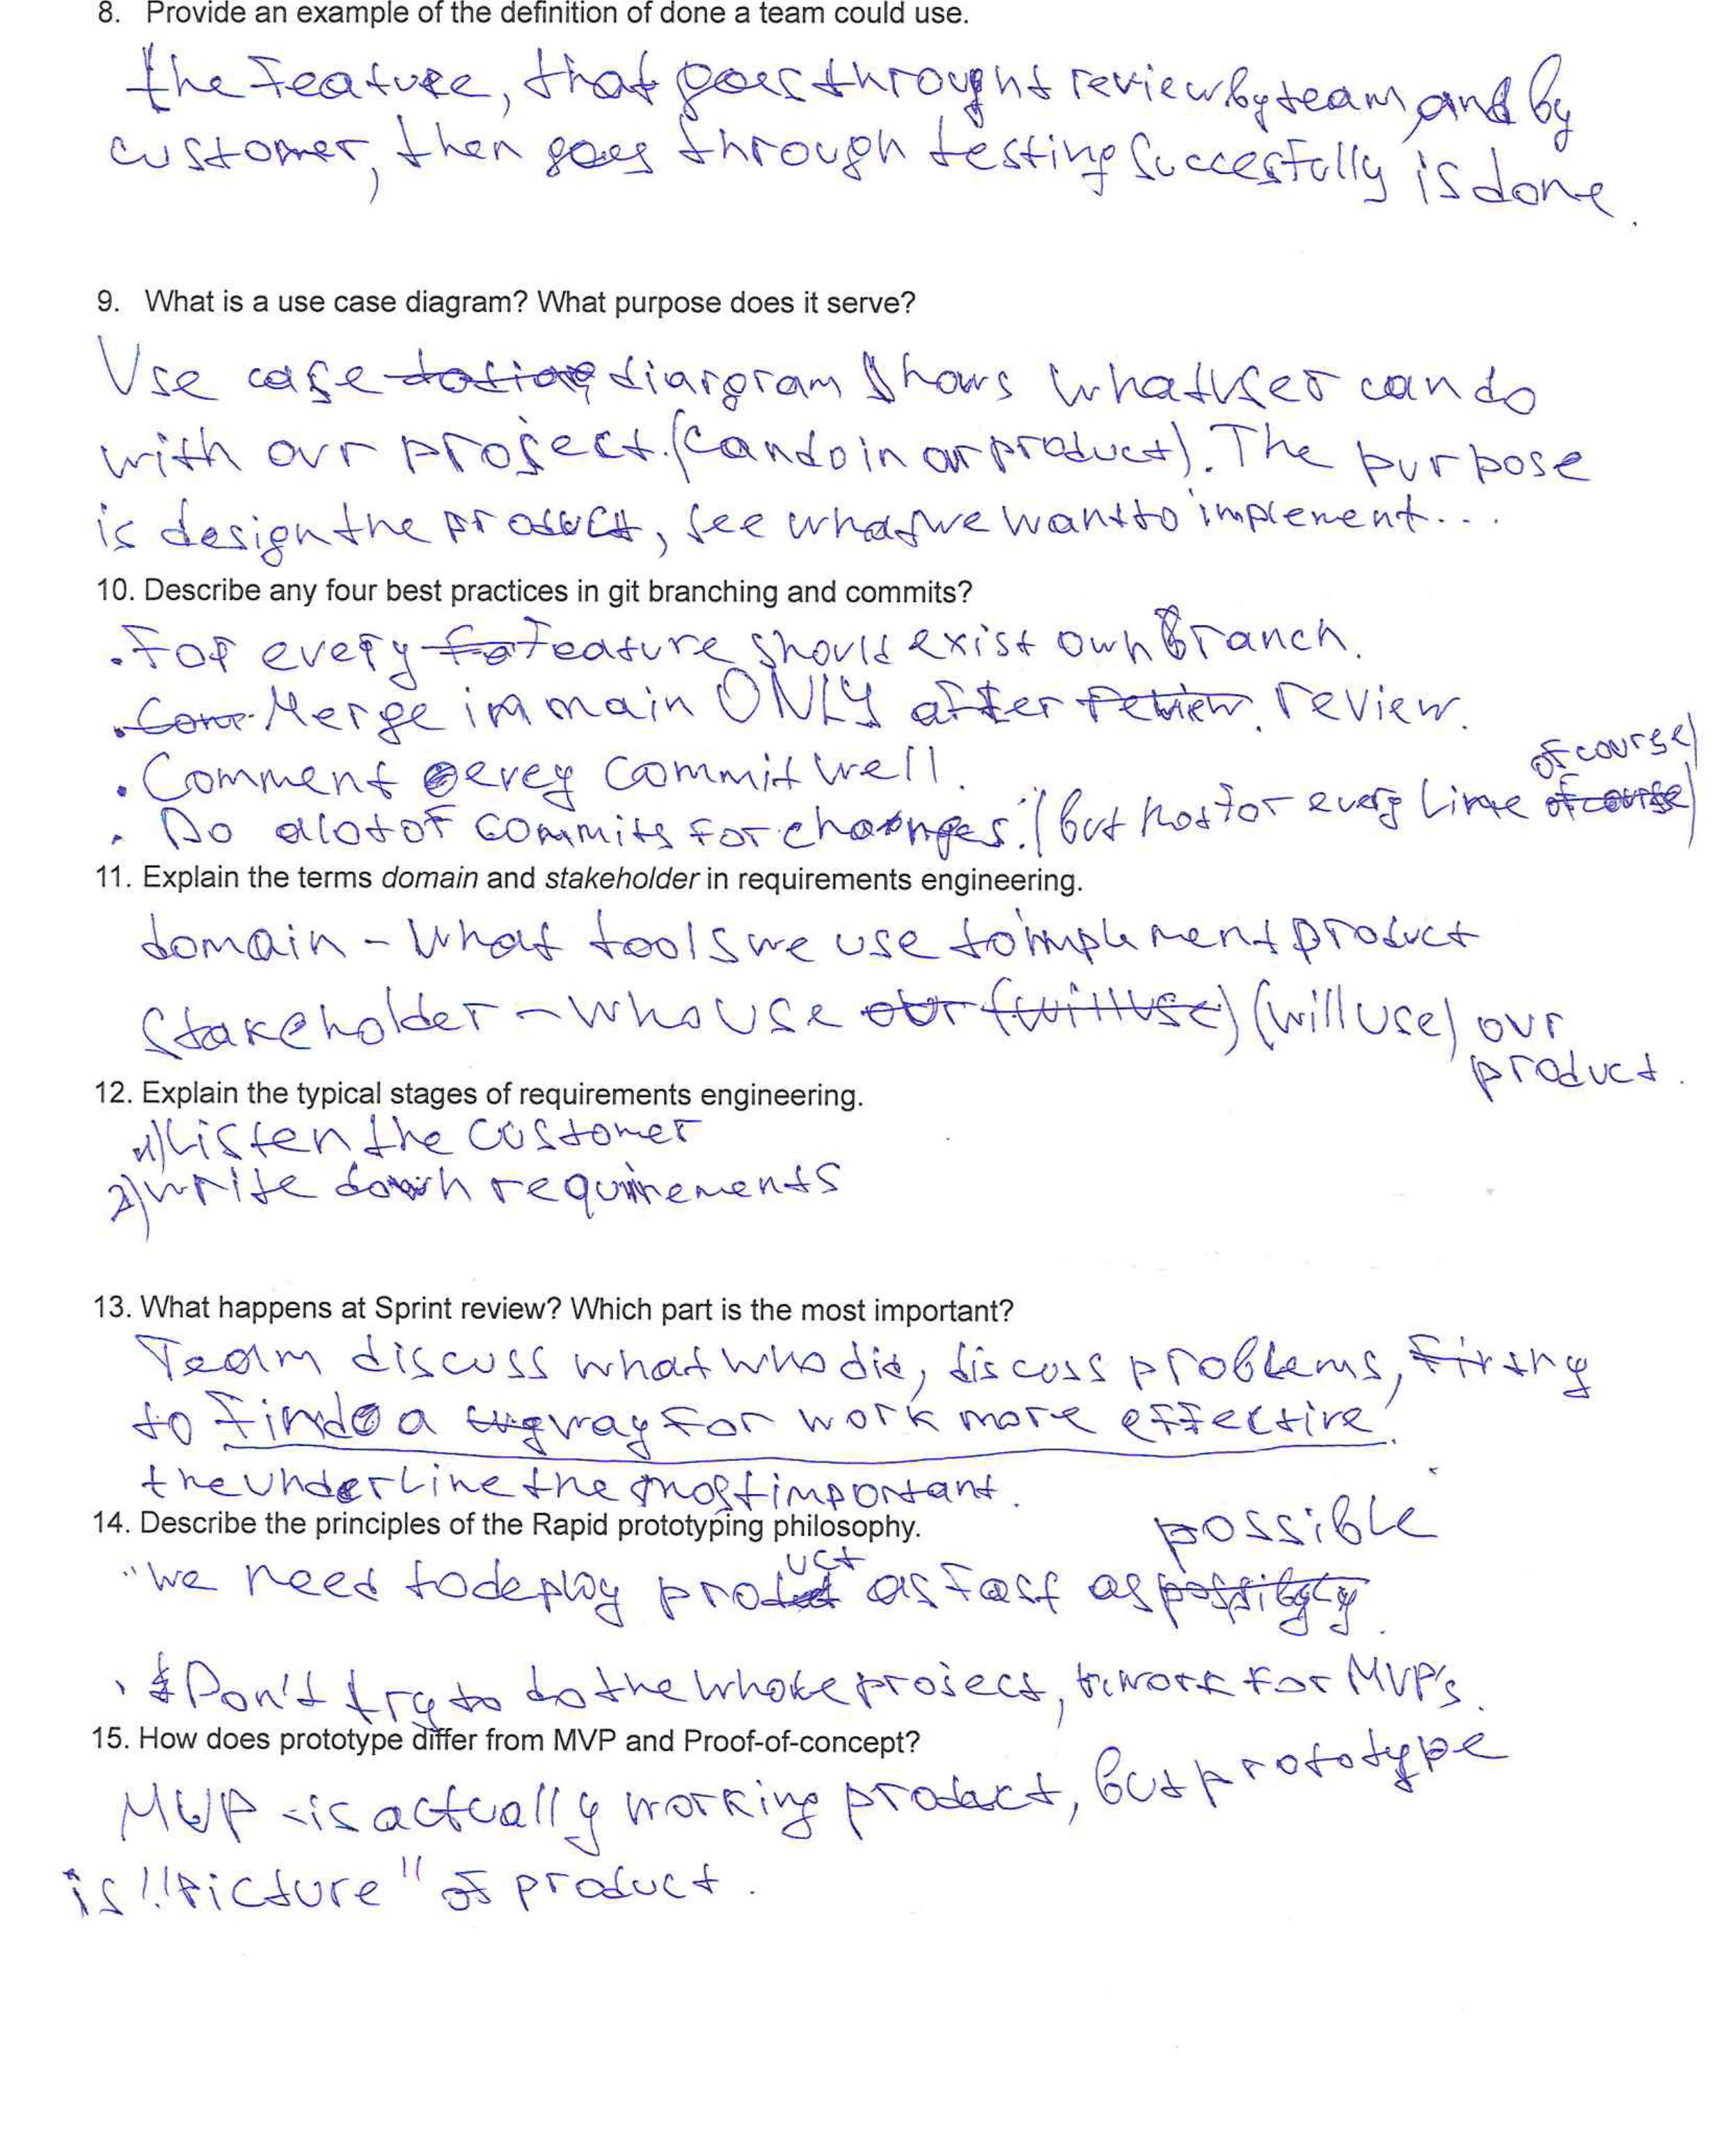 8. Provide an example of the definition of done a team could use.
the feature, that goes throught review by team, and by
customer, then goes through testing succesfully is done.
9. What is a use case diagram? What purpose does it serve?
Use case diargram shows what user can do
with our project. (can do in our product). The purpose
is design the product, see what we want to implement...
10. Describe any four best practices in git branching and commits?
. For every feature should exist own branch.
. Merge in main ONLY after review.
. Comment evey commit well.
. Do a lot of commits for changes. (but not for every line of course)
11. Explain the terms domain and stakeholder in requirements engineering.
domain - what tools we use to implement product
Stakeholder - who use (will use) our
product.
12. Explain the typical stages of requirements engineering.
1) Listen the customer
2) write down requirements
13. What happens at Sprint review? Which part is the most important?
Team discuss what who did, discuss problems, try
to find a way for work more effective.
the underline the most important.
14. Describe the principles of the Rapid prototyping philosophy.
"we need to deploy product as fast as possible
. Don't try to do the whole project, work for MVP's.
15. How does prototype differ from MVP and Proof-of-concept?
MVP - is actually working product, but prototype
is "Picture" of product.